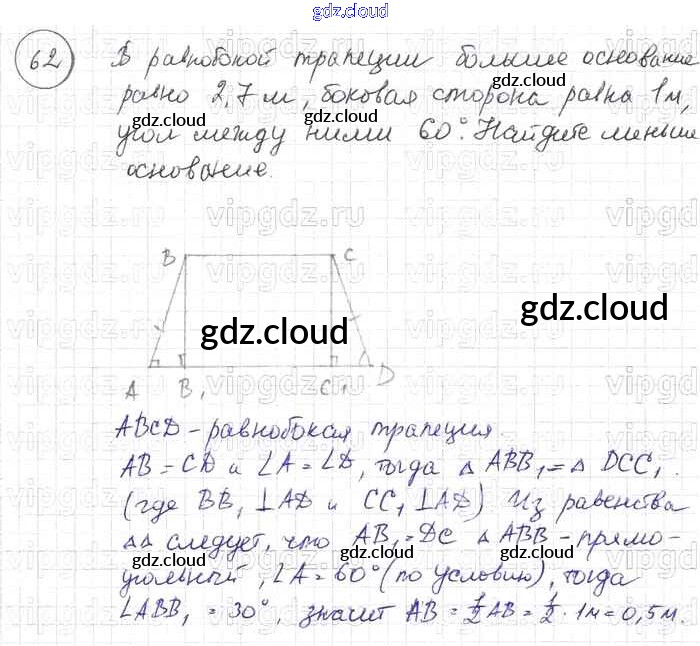 gdz.cloud
62 В равнобокой трапеции большее основание
равно 2,7 м, боковая сторона равна 1 м,
угол между ними 60°. Найдите меньше
основание.
B C
A B₁ C₁ D
gdz.cloud
gdz.cloud
ABCD - равнобокая трапеция.
AB = CD и ∠A = ∠D, тогда △ ABB₁ = △ DCC₁.
(где BB₁ ⊥ AD и CC₁ ⊥ AD) Из равенства
△△ следует, что AB₁ = DC △ ABB - прямо-
угольный, ∠A = 60° (по условию), тогда
∠ABB₁ = 30°, значит AB = ½ AB = ½ · 1м = 0,5 м.